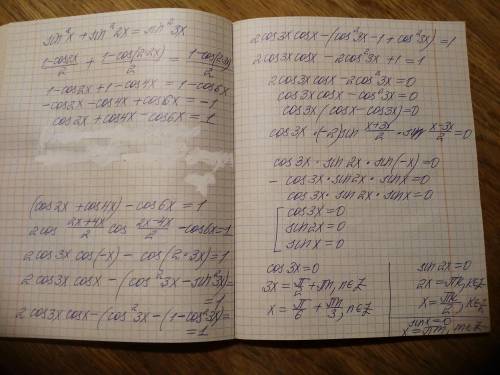 sin²x + sin²2x = sin²3x
(1-cos2x)/2 + (1-cos(2·2x))/2 = (1-cos(2·3x))/2
1-cos2x+1-cos4x = 1-cos6x
-cos2x-cos4x+cos6x = -1
cos2x+cos4x-cos6x = 1
(cos2x+cos4x)-cos6x = 1
2cos (2x+4x)/2 cos (2x-4x)/2 -cos6x=1
2cos3x cos(-x) - cos(2·3x)=1
2cos3x cosx - (cos²3x-sin²3x)=
=1
2cos3x cosx-(cos²3x-(1-cos²3x))=
=1
2cos3x cosx-(cos²3x-1+cos²3x)=1
2cos3x cosx - 2cos²3x+1 = 1
2cos3x cosx-2cos²3x=0
cos3x cosx-cos²3x=0
cos3x(cosx-cos3x)=0
cos3x·(-2)sin (x+3x)/2 · sin (x-3x)/2 =0
cos3x·sin2x·sin(-x)=0
- cos3x·sin2x·sinx=0
cos3x·sin2x·sinx=0
[ cos3x=0
sin2x=0
sinx=0
cos3x=0
3x = π/2 + πn, n∈Z
x = π/6 + πn/3, n∈Z
sin2x=0
2x=πk, k∈Z
x=πk/2, k∈Z
sinx=0
x=πm, m∈Z